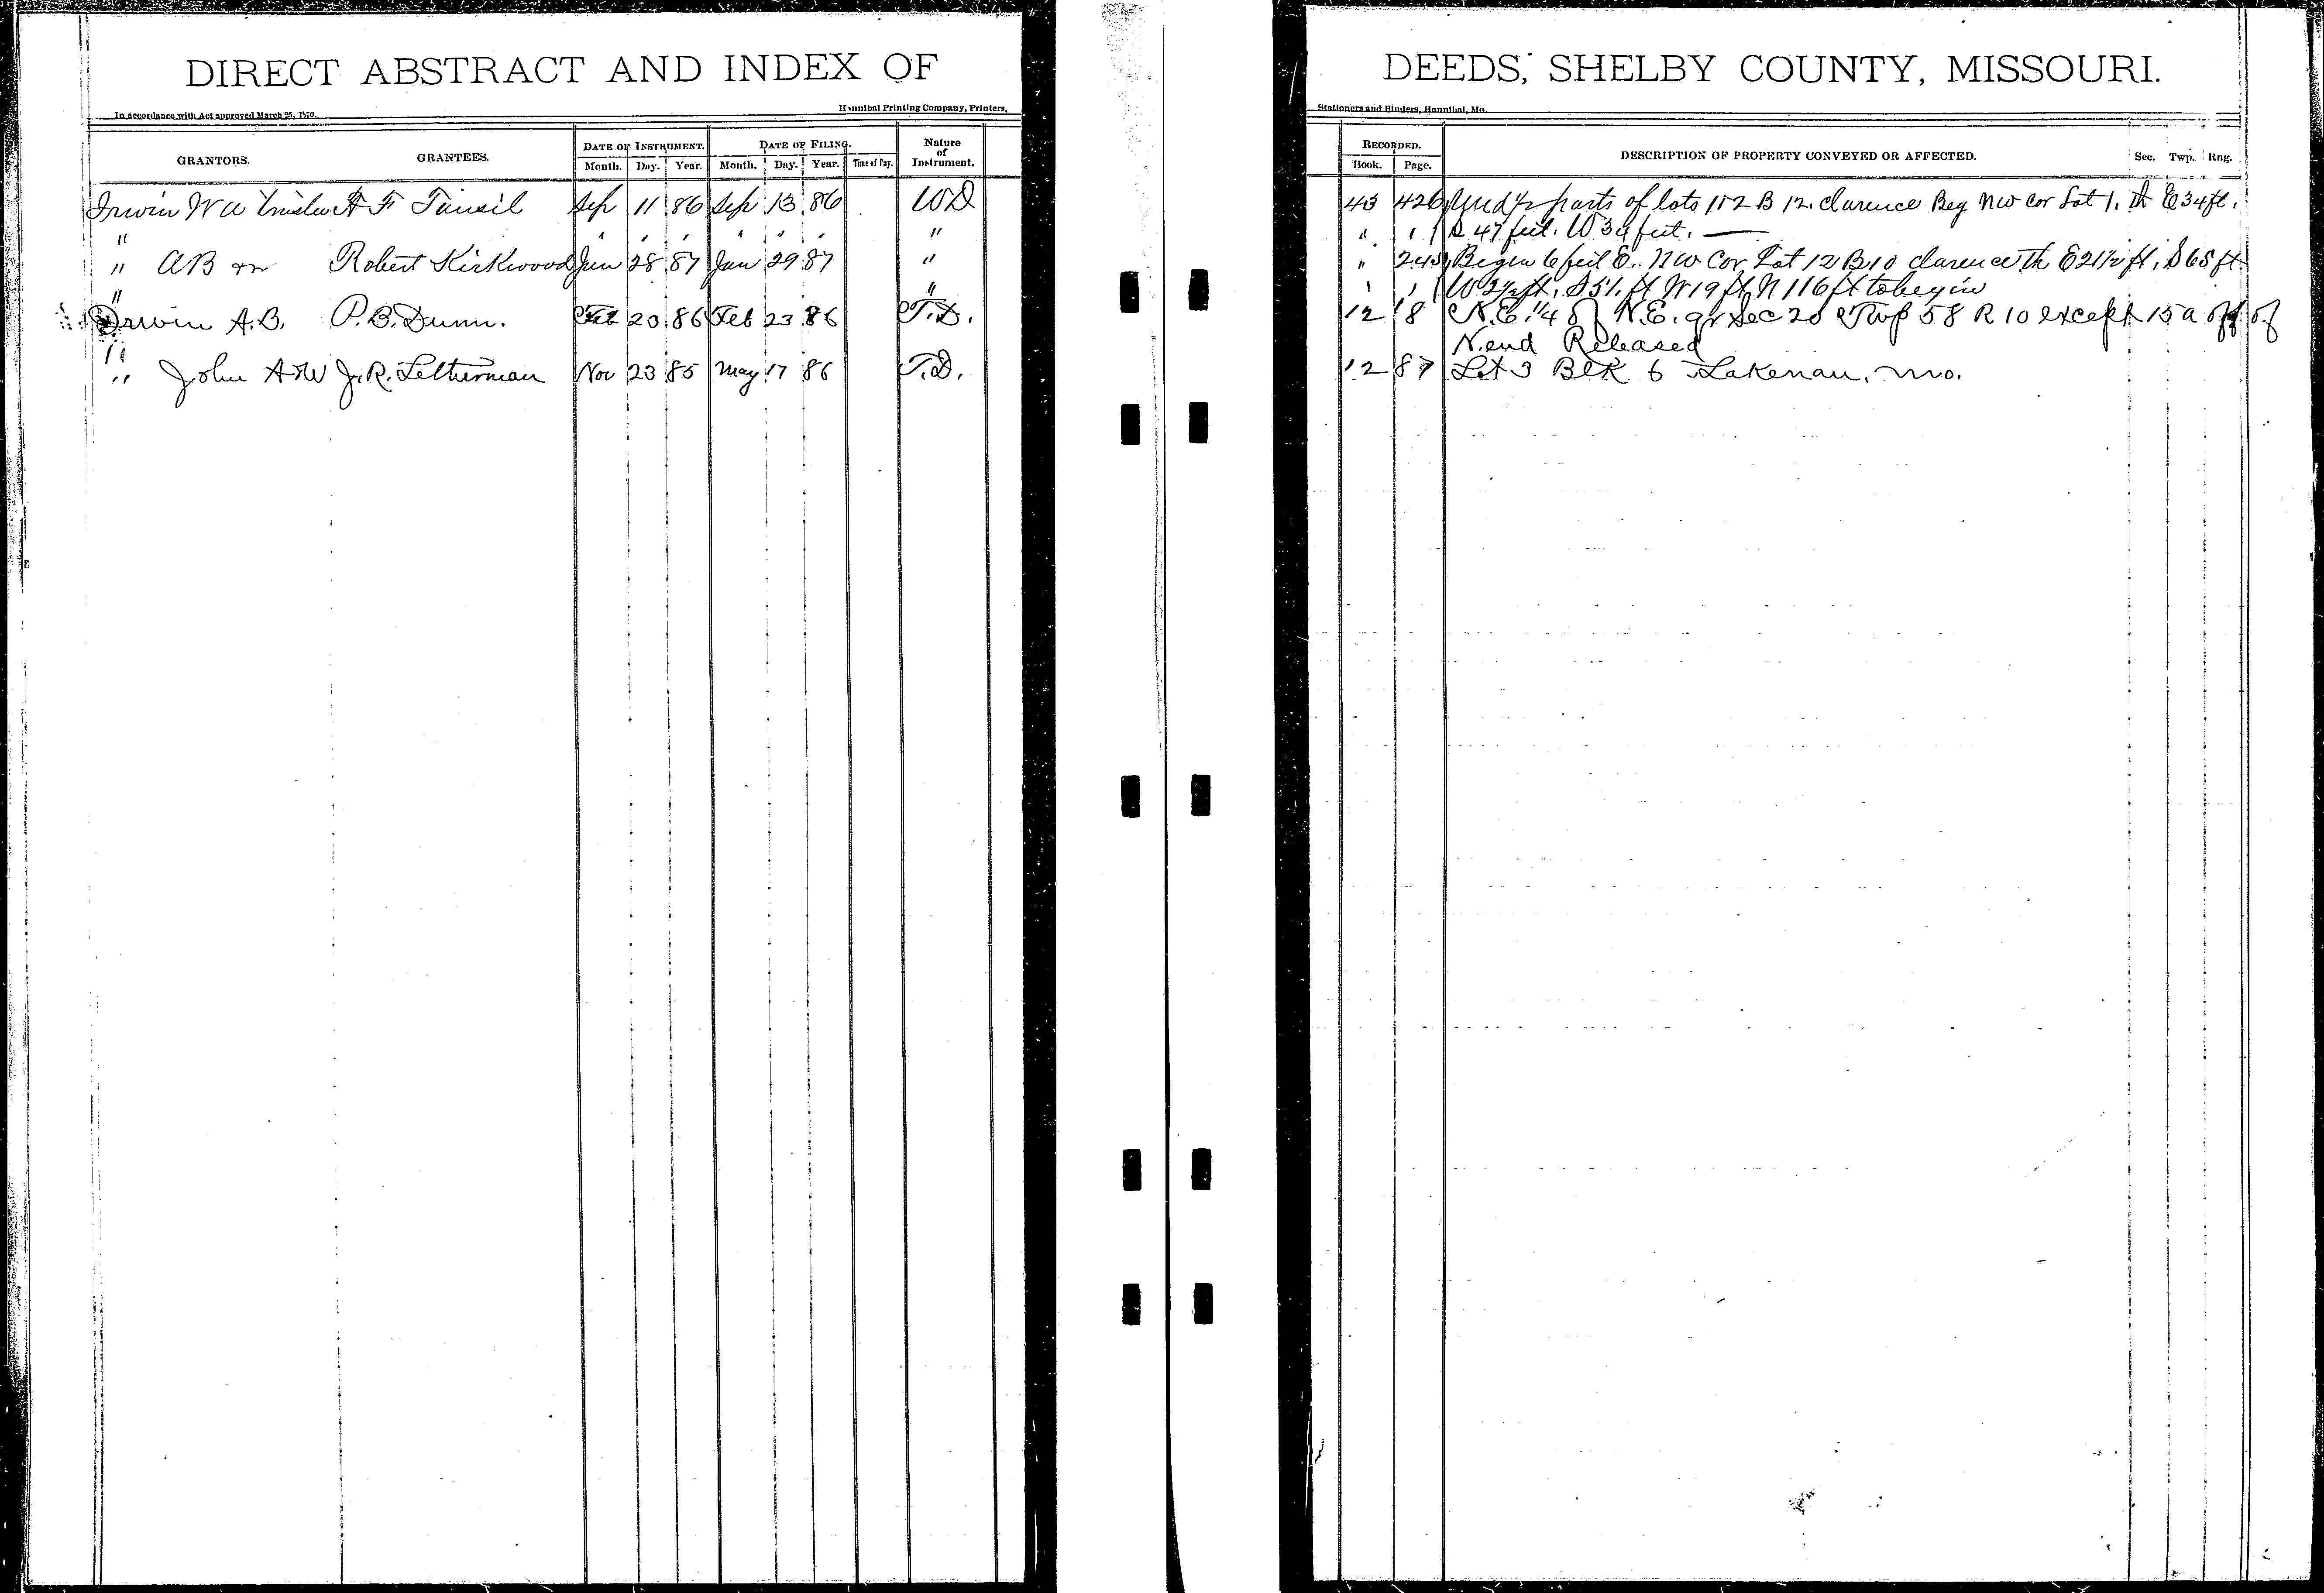 DIRECT ABSTRACT AND INDEX OF
In accordance with Act approved March 25, 1870.
Hannibal Printing Company, Printers,
GRANTORS. GRANTEES. DATE OF INSTRUMENT. DATE OF FILING. Nature of Instrument.
Month. Day. Year. Month. Day. Year. Time of Day.
Irwin W A Trustee H F Tinsil Sep 11 86 Sep 13 86 WD
" " " " " " " "
" AB Robert Kirkwood Jan 28 87 Jan 29 87 "
" "
Irwin A.B. P.B. Dunn. Feb 20 86 Feb 23 86 T.D.
"
" John A & W J.R. Letherman Nov 23 85 May 17 86 T.D.
DEEDS, SHELBY COUNTY, MISSOURI.
Stationers and Binders, Hannibal, Mo.
RECORDED. DESCRIPTION OF PROPERTY CONVEYED OR AFFECTED. Sec. Twp. Rng.
Book. Page.
43 426 Und 1/2 parts of lots 1 & 2 B 12. Clarence Beg NW Cor Lot 1. th E 34 ft.
" " S 47 feet. W 34 feet. —
" 245 Begin 6 feet E. NW Cor Lot 12 B 10 Clarence th E 21 1/2 ft, S 65 ft
" " W 2 1/2 ft, S 51 ft W 19 ft N 116 ft to begin
12 18 N.E. 1/4 of N.E. qr Sec 20 Twp 58 R 10 except 15 a off of
N. end Released
12 87 Lot 3 Blk 6 Lakenan, Mo.